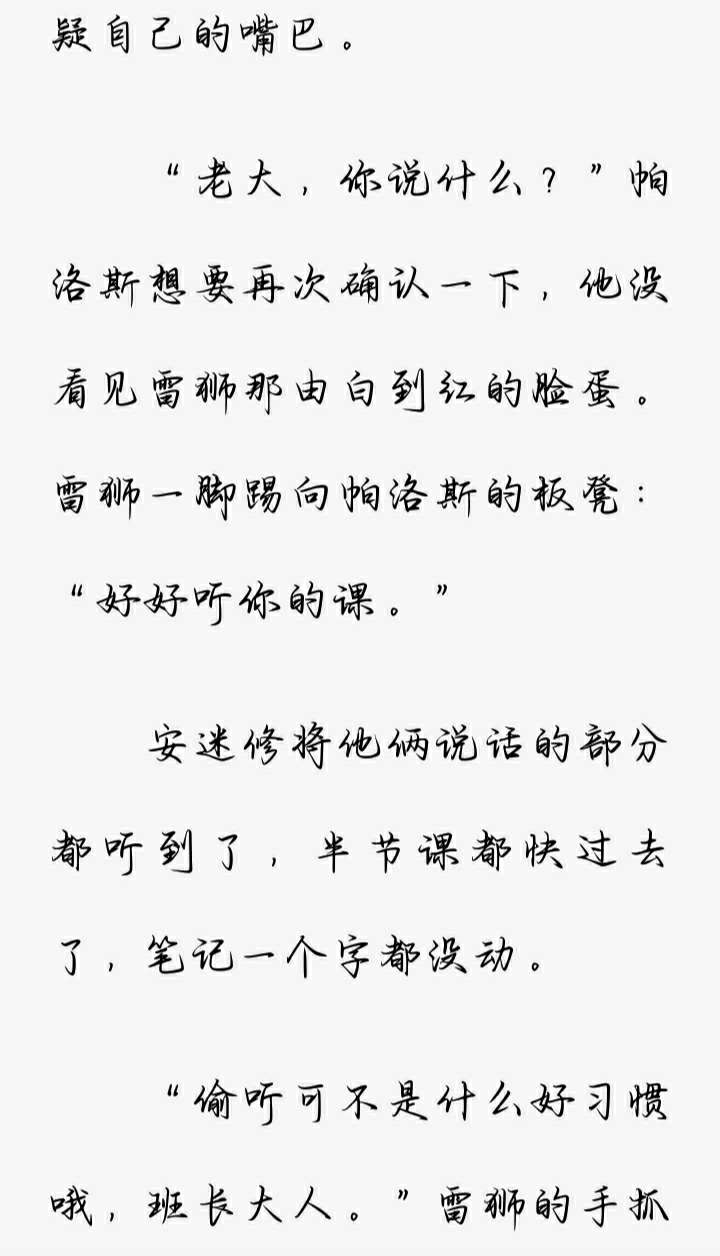 疑自己的嘴巴。
“老大，你说什么？”帕
洛斯想要再次确认一下，他没
看见雷狮那由白到红的脸蛋。
雷狮一脚踢向帕洛斯的板凳：
“好好听你的课。”
安迷修将他俩说话的部分
都听到了，半节课都快过去
了，笔记一个字都没动。
“偷听可不是什么好习惯
哦，班长大人。”雷狮的手抓